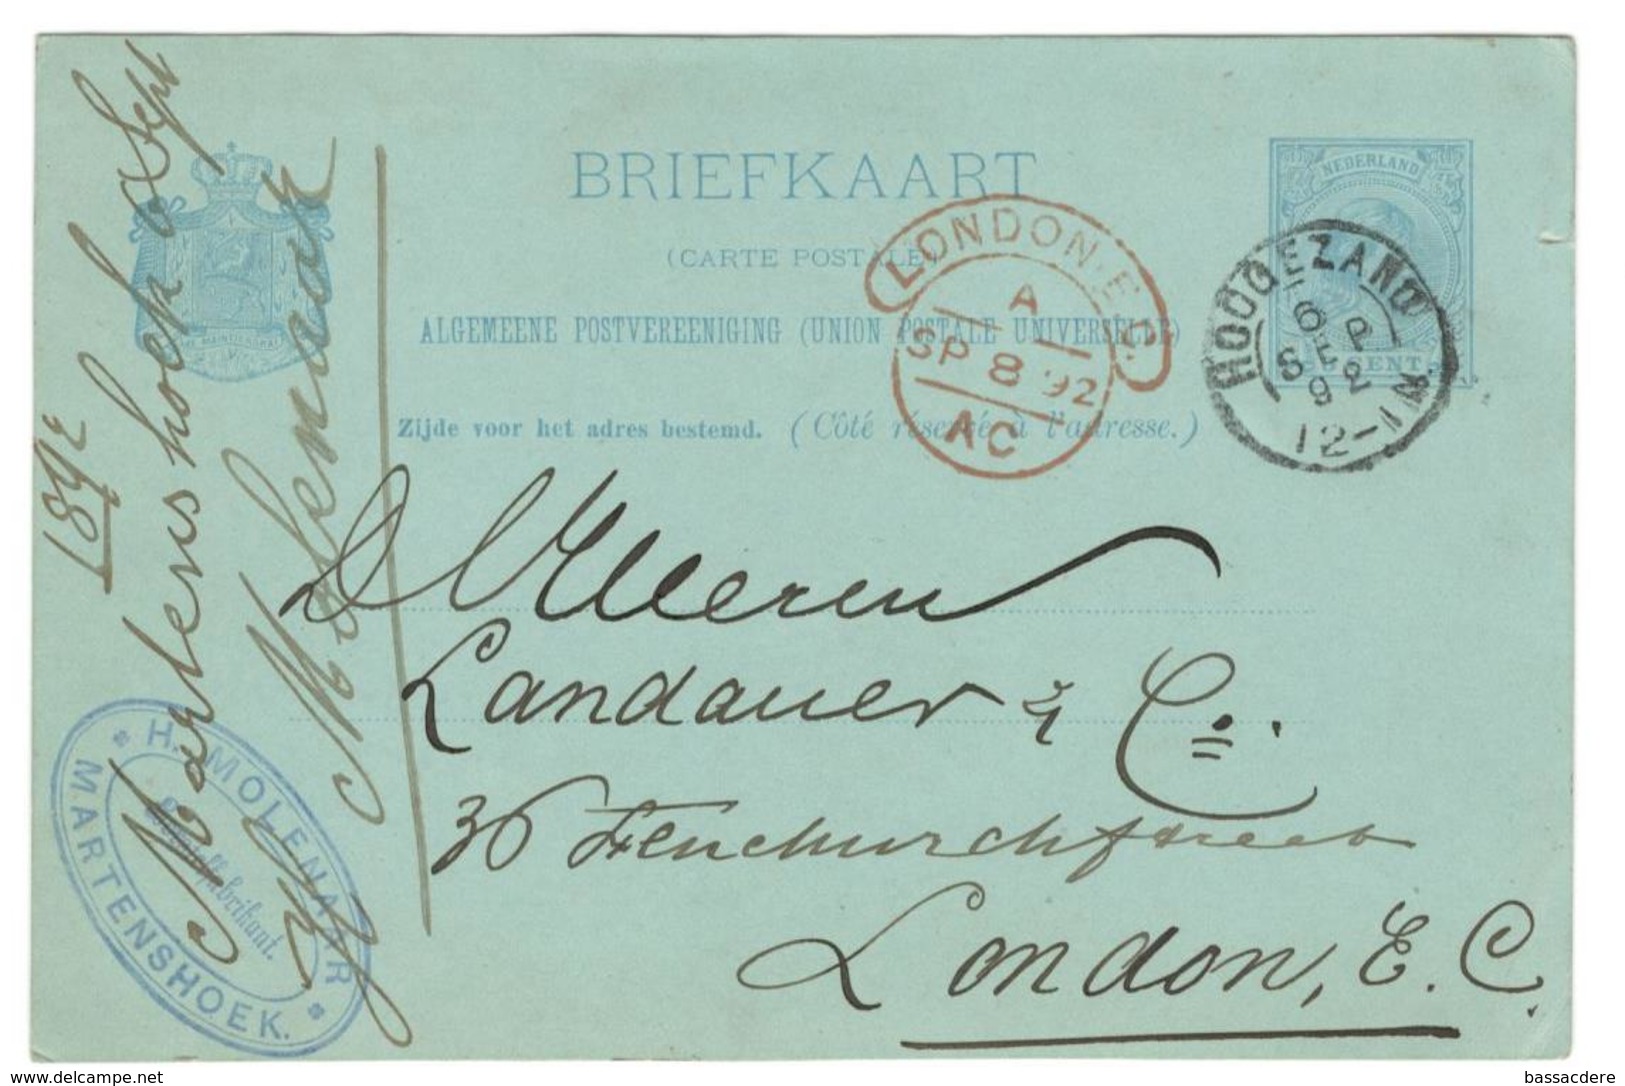 BRIEFKAART
(CARTE POSTALE)
ALGEMEENE POSTVEREENIGING (UNION POSTALE UNIVERSELLE)
Zijde voor het adres bestemd. (Côté réservé à l'adresse.)
NEDERLAND
CENT
HOOGEZAND
6 SEP 92
12-1 N
LONDON. E.C.
A
SP 8 92
AC
D Heeren
Landauer & Co.
36 Fenchurchstreet
London, E. C.
Martenshoek 6 Sept
1892
H Molenaar
H. MOLENAAR
MARTENSHOEK.
www.delcampe.net
bassacdere